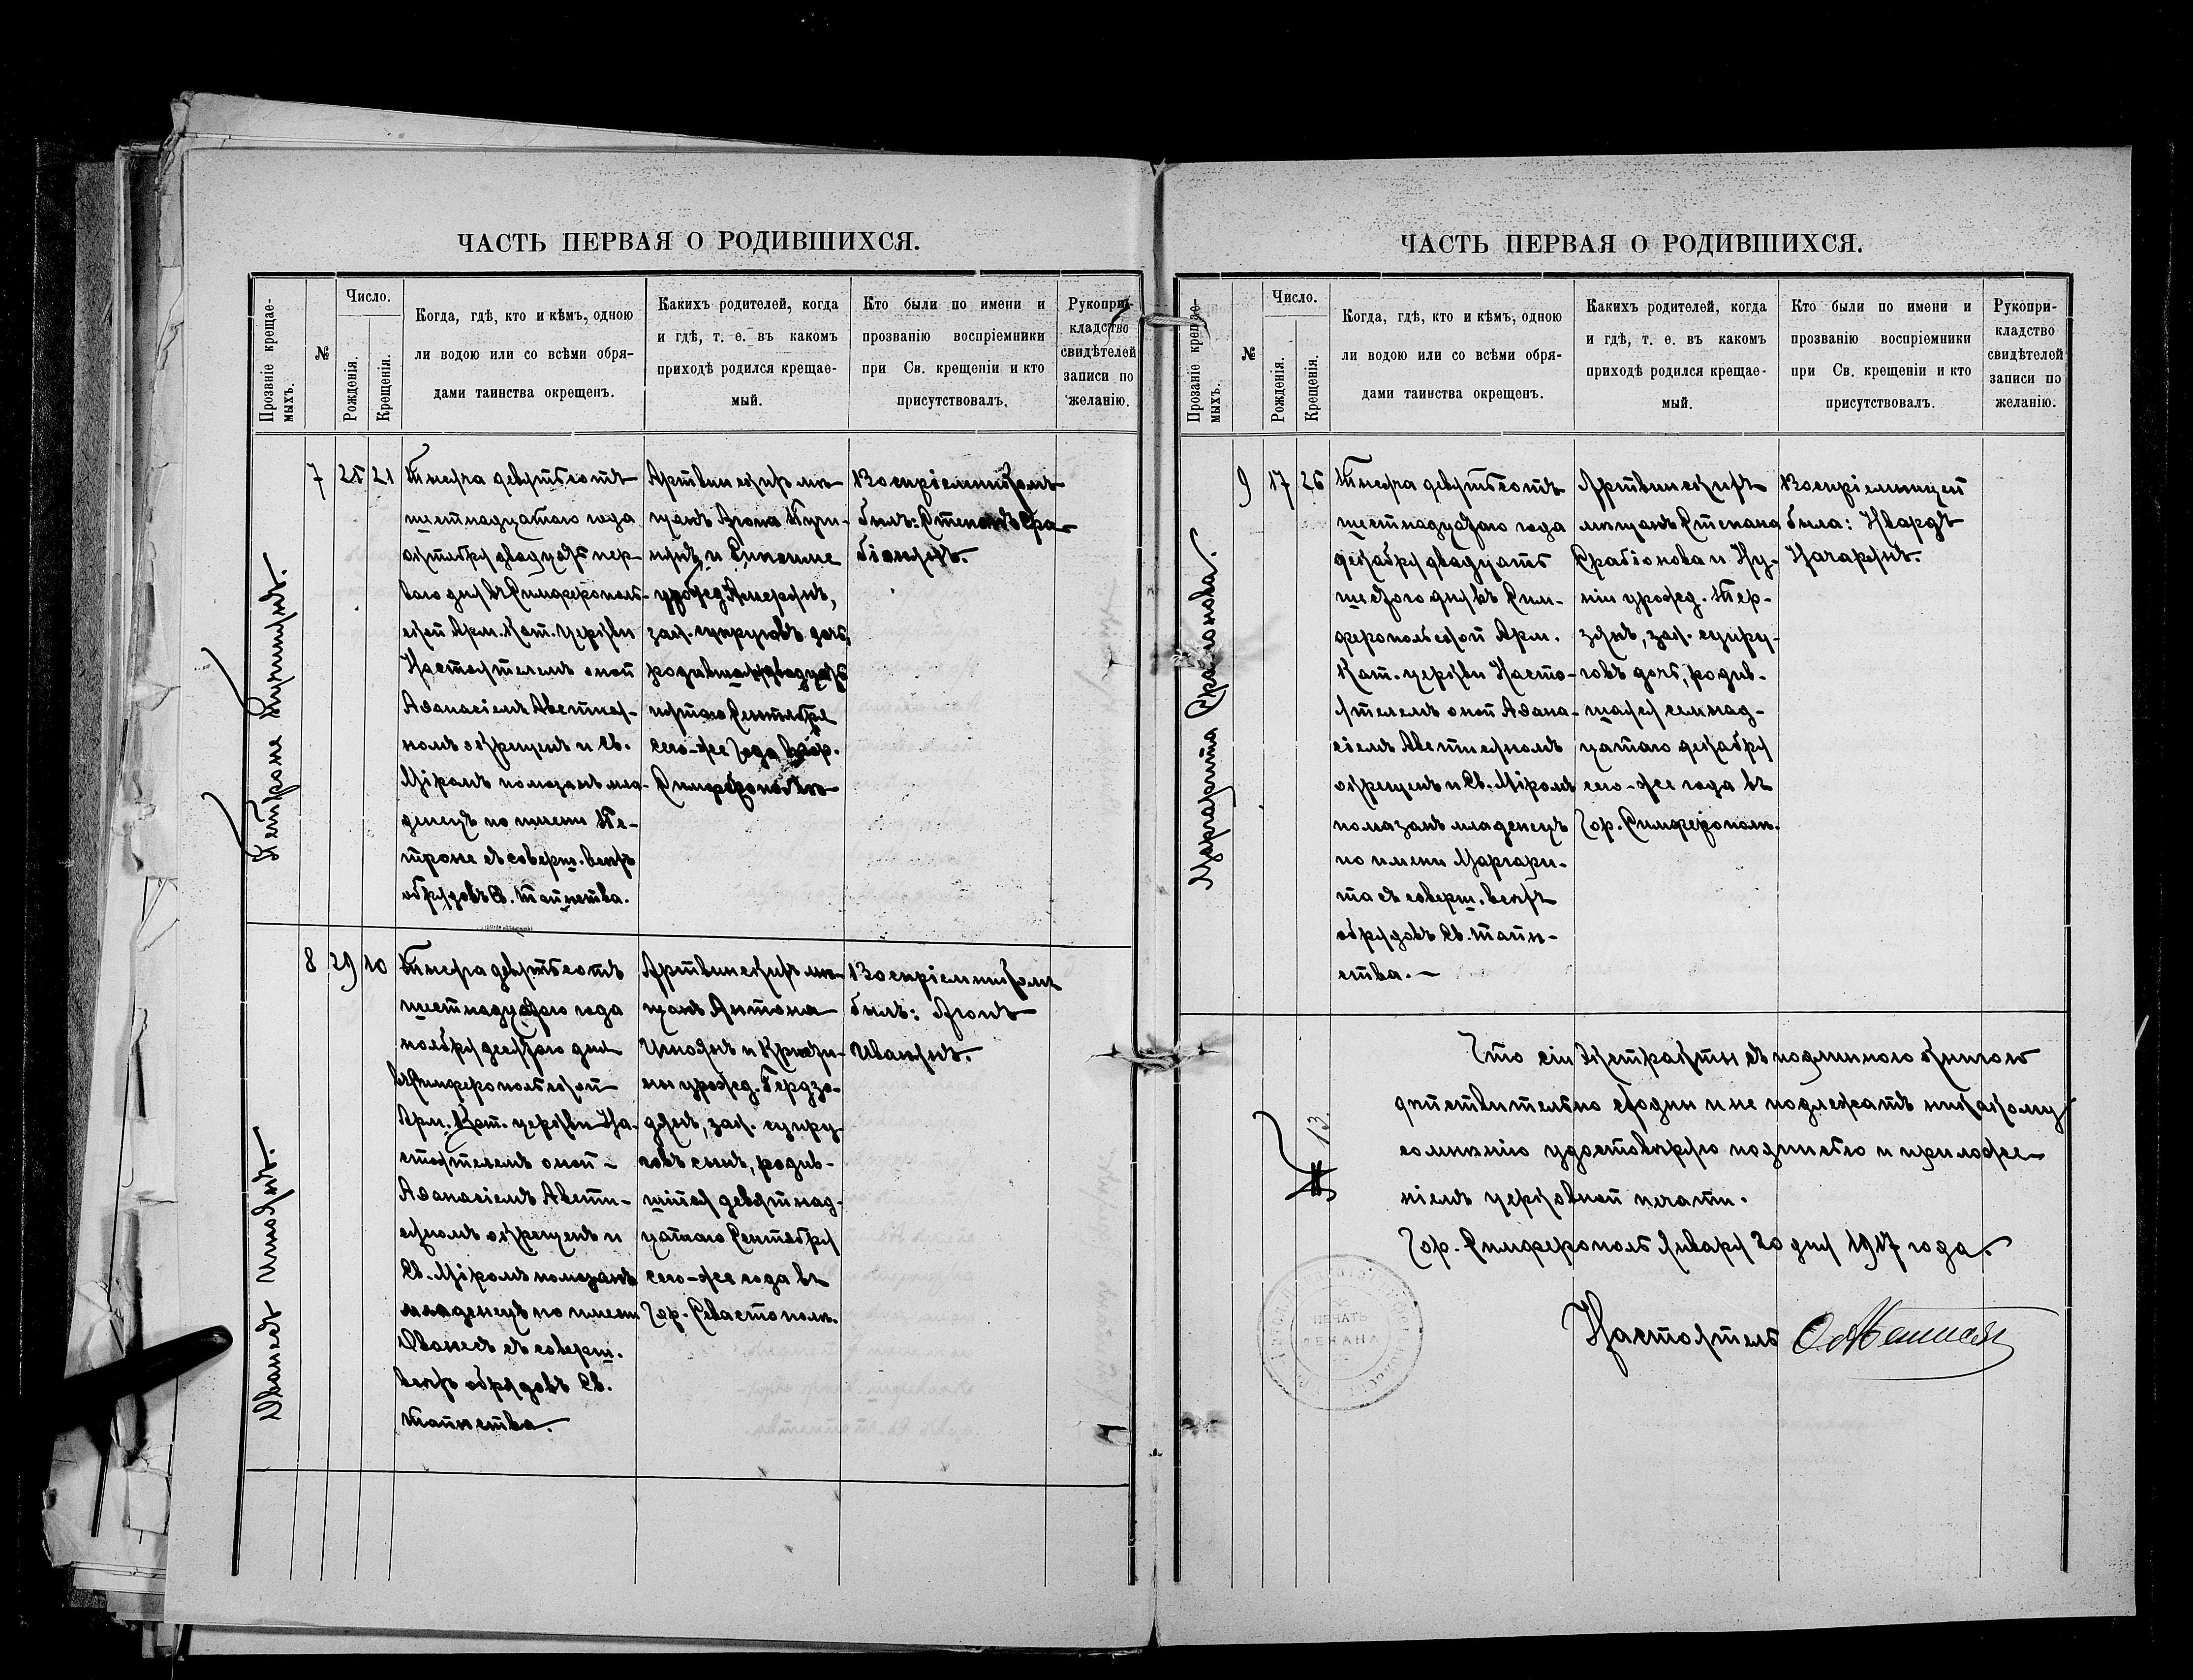 ЧАСТЬ ПЕРВАЯ О РОДИВШИХСЯ.
Прозвніе крещае-
мыхъ.
№
Число.
Рожденія.
Крещенія.
Когда, гдѣ, кто и кѣмъ, одною
ли водою или со всѣми обря-
дами таинства окрещенъ.
Какихъ родителей, когда
и гдѣ, т. е. въ какомъ
приходѣ родился крещае-
мый.
Кто были по имени и
прозванію воспріемники
при Св. крещеніи и кто
присутствовалъ.
Рукопри-
кладство
свидѣтелей
записи по
желанію.
7
25
21
Тысяча девятьсотъ
шестнадцатаго года
октября двадцать пер-
ваго дня въ Симферополь-
ской Арм. Кат. церкви
Настоятелемъ оной
Аѳанасіемъ Аветися-
номъ окрещенъ и Св.
Мѵромъ помазанъ мла-
денецъ по имени Пе-
троне съ соверш. всѣхъ
обрядовъ Св. Таинства.
Артвинскихъ мѣ-
щанъ
урожд.
зак. супруговъ дочь,
родившаяся двадцать
пятаго Сентября
сего-же года въ гор.
Симферополѣ
Воспріемникомъ
былъ: Степанъ Сра-
біоновъ.
8
29
10
Тысяча девятьсотъ
шестнадцатаго года
ноября десятого дня
въ Симферопольской
Арм. Кат. церкви На-
стоятелемъ оной
Аѳанасіемъ Авети-
сяномъ окрещенъ и
Св. Мѵромъ помазанъ
младенецъ по имени
Ованесъ съ соверш.
всѣхъ обрядовъ Св.
таинства.
Артвинскихъ мѣ-
щанъ Антона
урожд.
зак. супру-
говъ сынъ, родив-
шійся девятнад-
цатаго Сентября
сего-же года въ
Гор. Севастополѣ.
Воспріемникомъ
былъ: Агопъ
Ивановъ.
ЧАСТЬ ПЕРВАЯ О РОДИВШИХСЯ.
Прозваніе крещае-
мыхъ.
№
Число.
Рожденія.
Крещенія.
Когда, гдѣ, кто и кѣмъ, одною
ли водою или со всѣми обря-
дами таинства окрещенъ.
Какихъ родителей, когда
и гдѣ, т. е. въ какомъ
приходѣ родился крещае-
мый.
Кто были по имени и
прозванію воспріемники
при Св. крещеніи и кто
присутствовалъ.
Рукопри-
кладство
свидѣтелей
записи по
желанію.
Маргарита Срабіонова.
9
17
26
Тысяча девятьсотъ
шестнадцатаго года
декабря двадцать
шестого дня въ Сим-
феропольской Арм.
Кат. церкви Насто-
ятелемъ оной Аѳана-
сіемъ Аветисяномъ
окрещенъ и Св. Мѵромъ
помазанъ младенецъ
по имени Маргари-
та съ соверш. всѣхъ
обрядовъ Св. таин-
ства.
Артвинскихъ
мѣщанъ Степана
Срабіонова и
урожд. Тер-
зянъ, зак. супру-
говъ дочь, родив-
шаяся семнад-
цатаго декабря
сего-же года въ
Гор. Симферополѣ.
Воспріемницей
была: Нвардъ
Начарянъ.
Что сіи экстракты съ подлинною книгою
дѣйствительно сходны и не подлежатъ никакому
сомнѣнію удостовѣряю подписью и приложе-
ніемъ церковной печати.
Гор. Симферополь Января 20 дня 1917 года.
Настоятель
ПЕЧАТЬ
ДЕКАНА